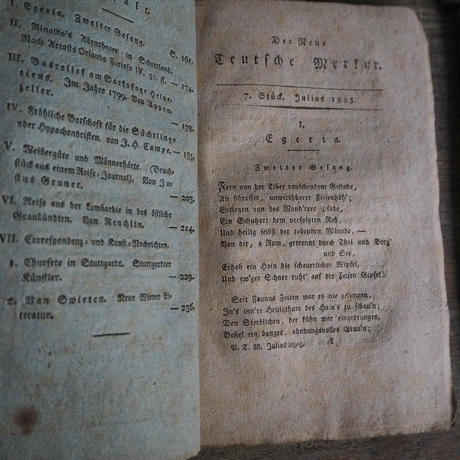 I. Egeria. Zweiter Gesang. S. 161.
II. Rinaldo's Abenteuer in Schottland.
Nach Ariosts Orlando Furioso IV. 51. ff. — 174.
III. Basrelief am Sarkofage
Im Jahre 1799. Von Appen-
zeller. — 179.
IV. Fröhliche Botschaft für die Süchtlinge
oder Hypochondristen, von J. H. Campe. — 185.
V. Weibergüte und Männerhärte. (Bruch-
stück aus einem Reise-Journal). Von Ju-
stus Gruner. — 203.
VI. Reise aus der Lombardie in das östliche
Graubündten. Von Renchlin. — 214.
VII. Correspondenz- und Kunst-Nachrichten.
1. Churfeste in Stuttgardt. Stuttgardter
Künstler. — 229.
2. Van Swieten. Neue Wiener Li-
teratur. — 236.
Der Neue
Teutsche Merkur.
7. Stück. Julius 1803.
I.
Egeria.
Zweiter Gesang.
Fern von der Tiber rauschendem Gestade,
An schroffer, unwirthbarer Felsenhöh';
Entlegen von des Wand'rers Pfade,
Ein Schutzort dem verfolgten Reh,
Und heilig selbst der tobenden Mänade, —
Von dir, o Rom, getrennt durch Thal und Berg
und See,
Erhob ein Hain die schauerlichen Wipfel,
Und ew'ger Schnee ruht' auf der Felsen Gipfel.
Seit Faunus Zeiten war es nie gelungen,
In's inn're Heiligthum des Hain's zu schau'n;
Den Sterblichen, der kühn war eingedrungen,
Befiel ein banges, ahndungsvolles Grau'n;
N. T. M. Julius 1803.